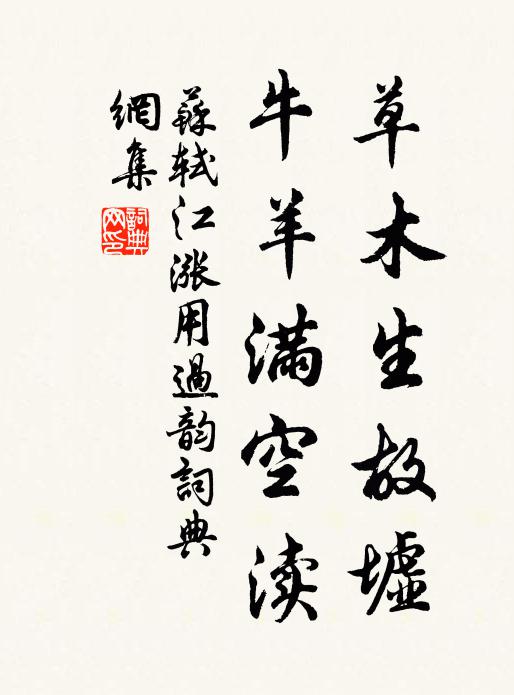 草木生故墟
牛羊满空渎
蘇軾江漲用過韵詞典
網集
詞典网印